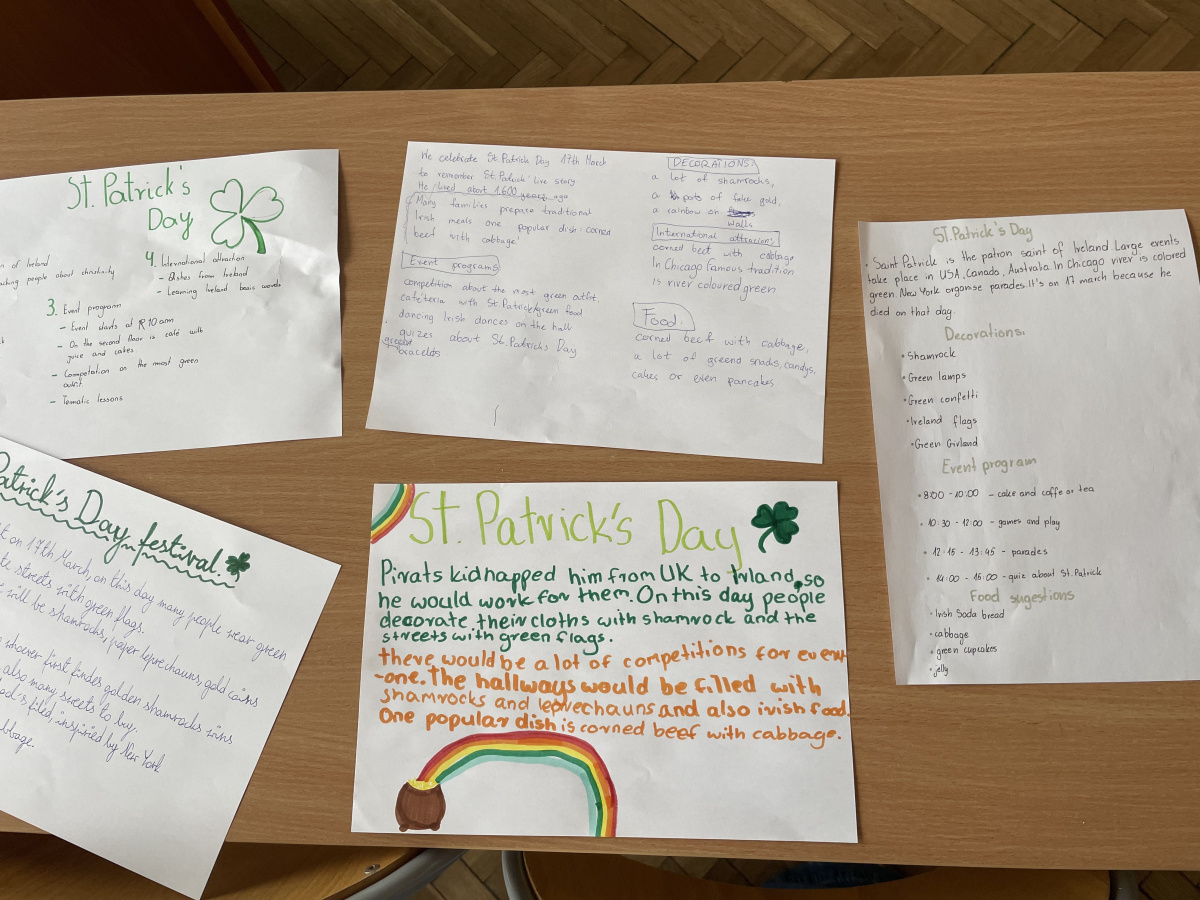 St. Patrick's
Day
n of Ireland
aching people about christianity
4. International attraction
- Dishes from Ireland
- Learning Ireland basic words
3. Event programm
- Event starts at 10 am
- On the second floor is café with
juice and cakes.
- Competation on the most green
outfit
- Tematic lessons
We celebrate St. Patrick Day 17th March
to remember St. Patrick' live story
He lived abort 1600 years ago
Many families prepare traditional
Irish meals one popular dish: corned
beef with cabbage!
Event programs
competition about the most green outfit,
cafeteria with St. Patrick/green food
dancing Irish dances on the hall
quizes about St. Patricks Day
bracelets
DECORATIONS:
a lot of shamrocks,
a pots of fake gold,
a rainbow on
walls
International attractions
corned beef with cabbage
In Chicago famous tradition
is river coloured green
Food:
corned beef with cabbage,
a lot of greend snacks, candys,
cakes or even pancakes
ST. Patrick's Day
• Saint Patrick is the patron saint of Ireland. Large events
take place in USA, Canada, Australia. In Chicago river is colored
green. New York organise parades. It's on 17 march because he
died on that day.
Decorations.
• Shamrock
• Green lamps
• Green confetti
• Ireland flags
• Green Girland
Event program
• 8:00 - 10:00 - cake and coffe or tea
• 10:30 - 12:00 - games and play
• 12:15 - 13:45 - parades
• 14:00 - 15:00 - quiz about St. Patrick
Food sugestions
• Irish Soda bread
• cabbage
• green cupcakes
• jelly
Patrick's Day festival.
on 17th March, on this day many people wear green
streets with green flags.
will be shamrocks, paper leprechauns, gold coins
whoever first findes golden shamrocks wins
also many sweets to buy.
filed, inspired by New York
bbage.
St. Patrick's Day
Pirats kidnapped him from UK to Irland, so
he would work for them. On this day people
decorate their cloths with shamrock and the
streets with green flags.
there would be a lot of competitions for every
-one. The hallways would be filled with
shamrocks and leprechauns and also irish food.
One popular dish is corned beef with cabbage.